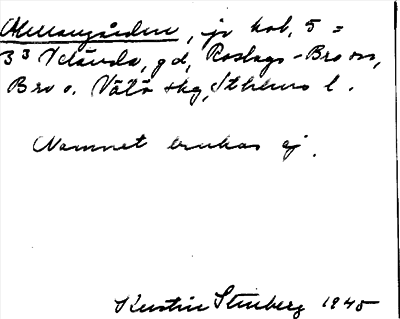 Mellangården, jr kol, 5 =
3³ Veländа, gd, Roslags-Bro sn,
Bro o. Vätö skg, Sthlms l.
Namnet brukas ej.
Kerstin Stenberg 1945